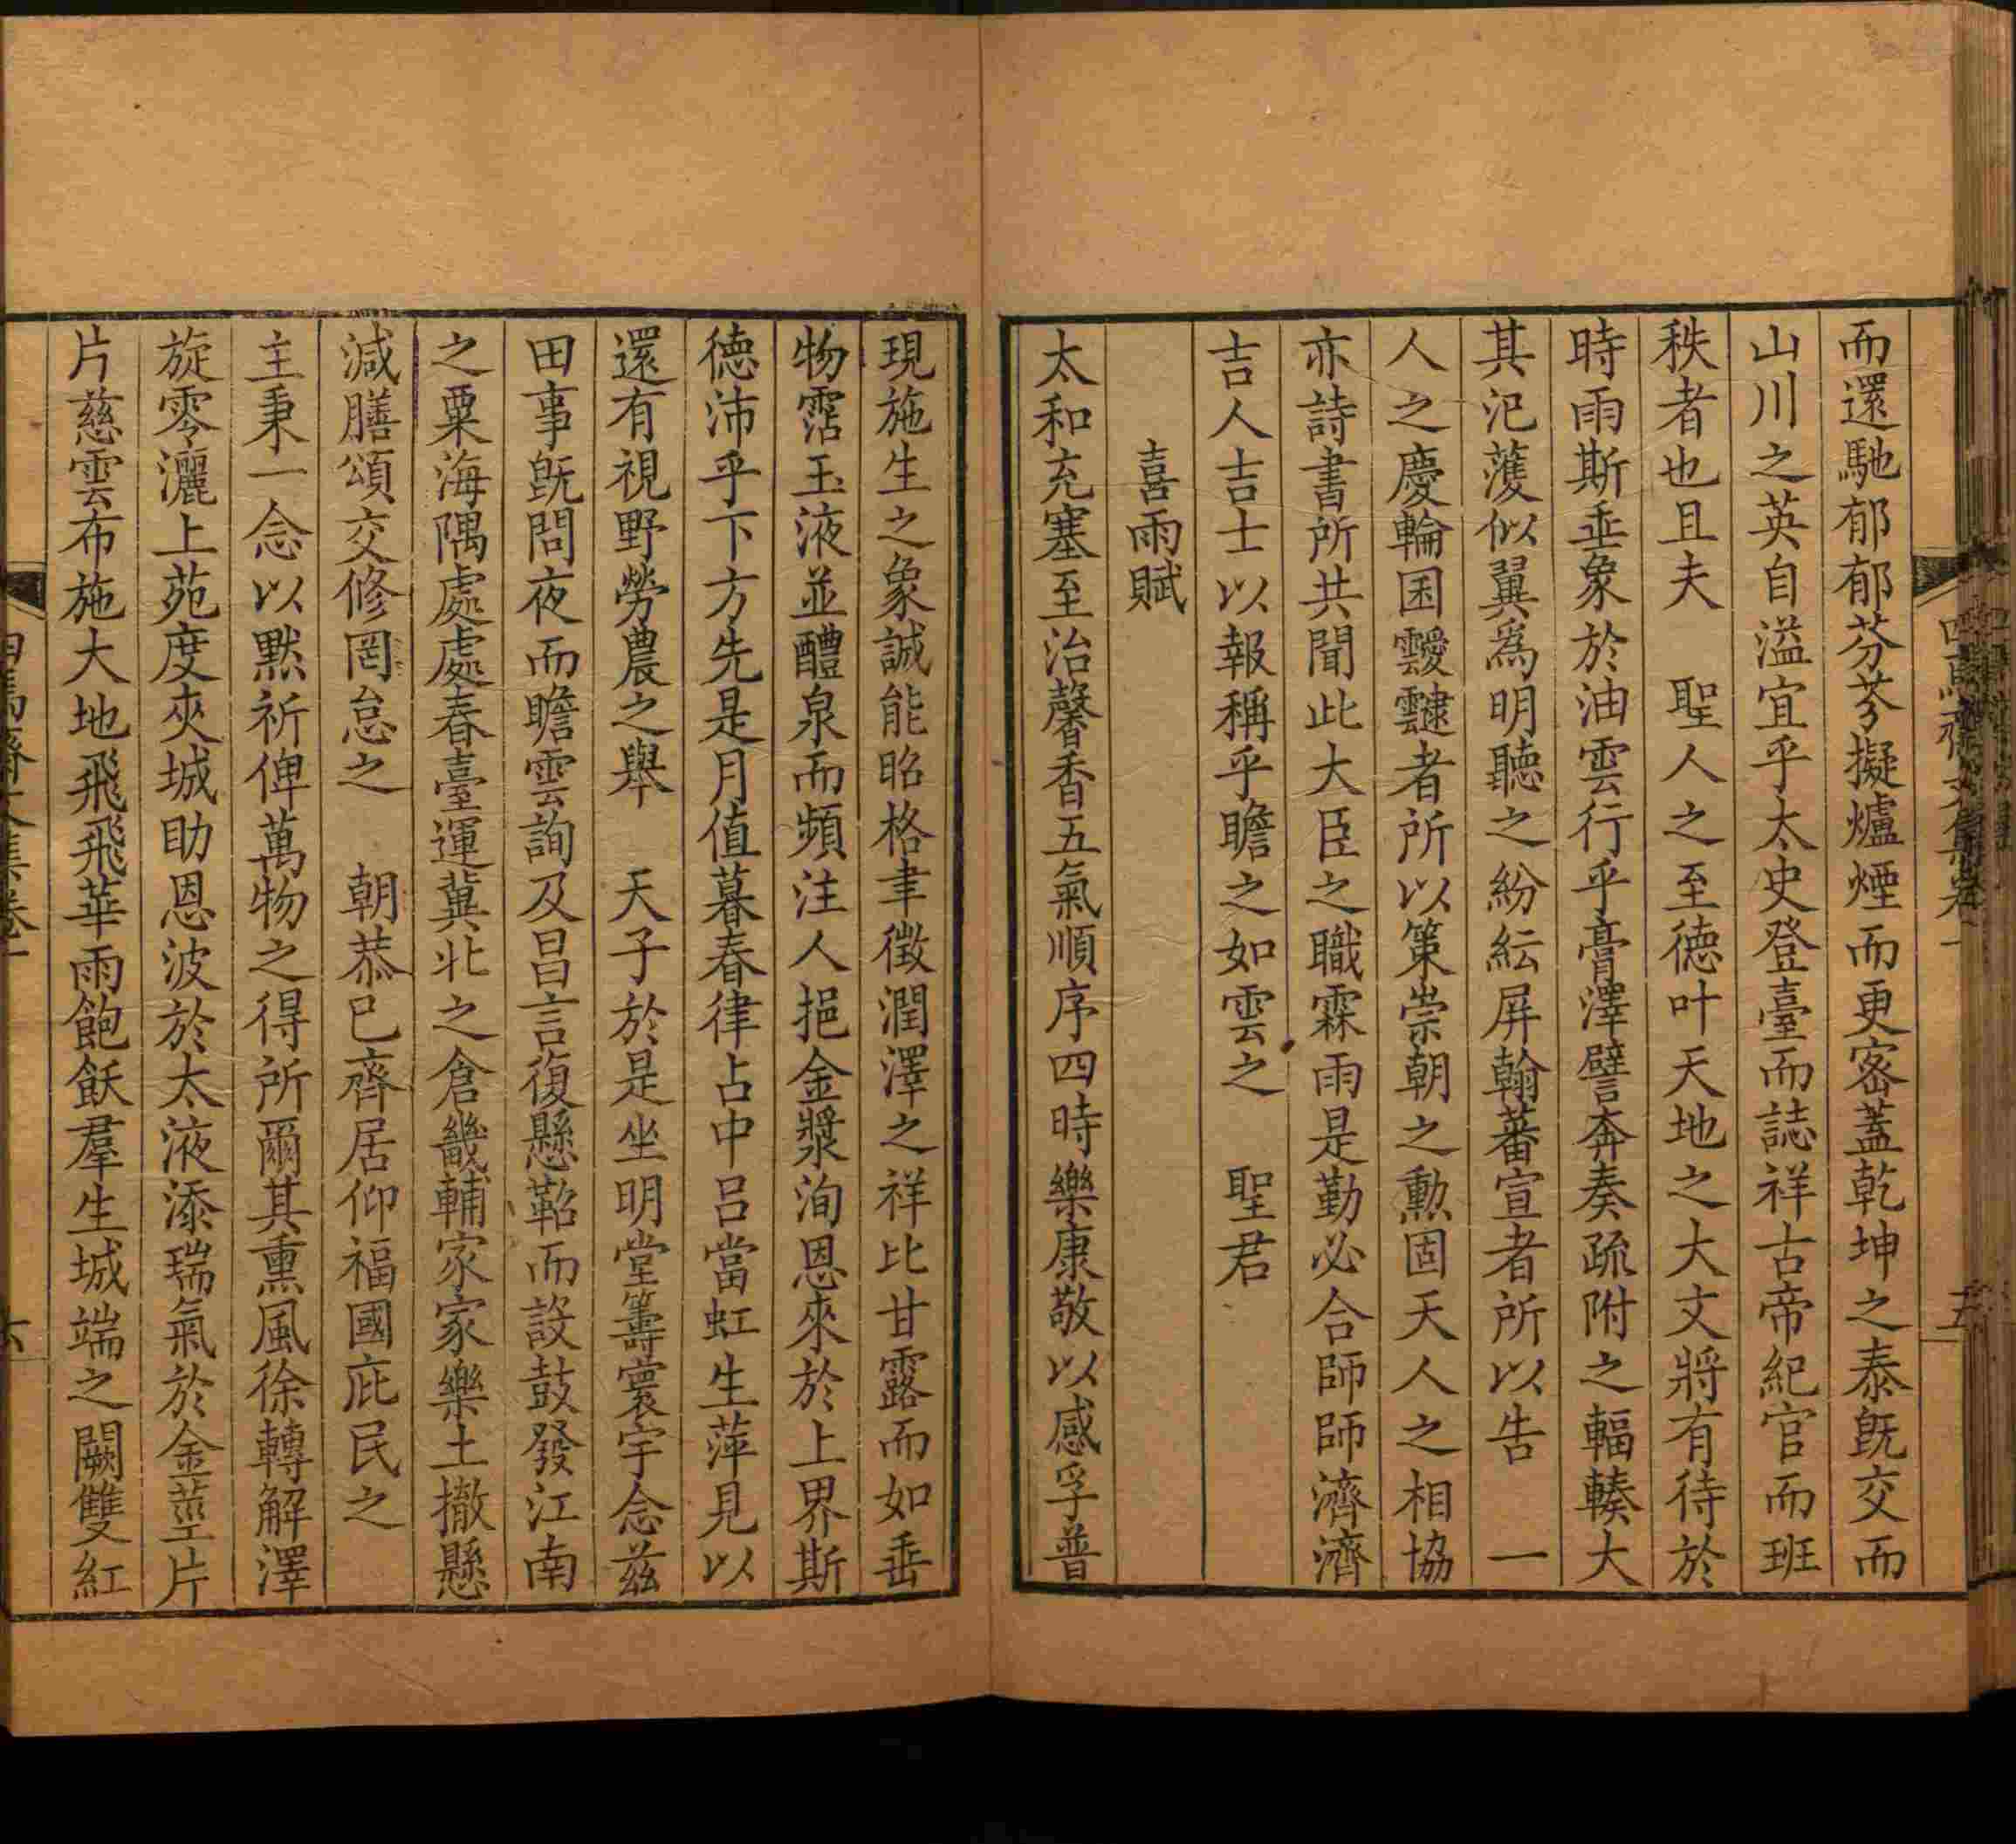 而還馳郁郁芬芬擬爐煙而更密蓋乾坤之泰旣交而
山川之英自溢宜乎太史登臺而誌祥古帝紀官而班
秩者也且夫　聖人之至德叶天地之大文將有待於
時雨斯垂象於油雲行乎膏澤譬奔奏疏附之輻輳大
其汜濩似翼爲明聽之紛紜屏翰蕃宣者所以告　一
人之慶輪囷靉靆者所以策崇朝之勲固天人之相協
亦詩書所共聞此大臣之職霖雨是勤必合師師濟濟
吉人吉士以報稱乎瞻之如雲之　聖君
喜雨賦
太和充塞至治馨香五氣順序四時樂康敬以感孚普
現施生之象誠能昭格聿徵潤澤之祥比甘露而如垂
物霑玉液並醴泉而頻注人挹金漿洵恩來於上界斯
德沛乎下方先是月値暮春律占中呂當虹生萍見以
還有視野勞農之舉　天子於是坐明堂籌寰宇念兹
田事旣問夜而瞻雲詢及昌言復懸鞀而設鼓發江南
之粟海隅處處春臺運冀北之倉畿輔家家樂土撤懸
減膳頌交修罔怠之　朝恭巳齊居仰福國庇民之
主秉一念以默祈俾萬物之得所爾其熏風徐轉解澤
旋零灑上苑度夾城助恩波於太液添瑞氣於金莖片
片慈雲布施大地飛飛華雨飽飫羣生城端之闕雙紅